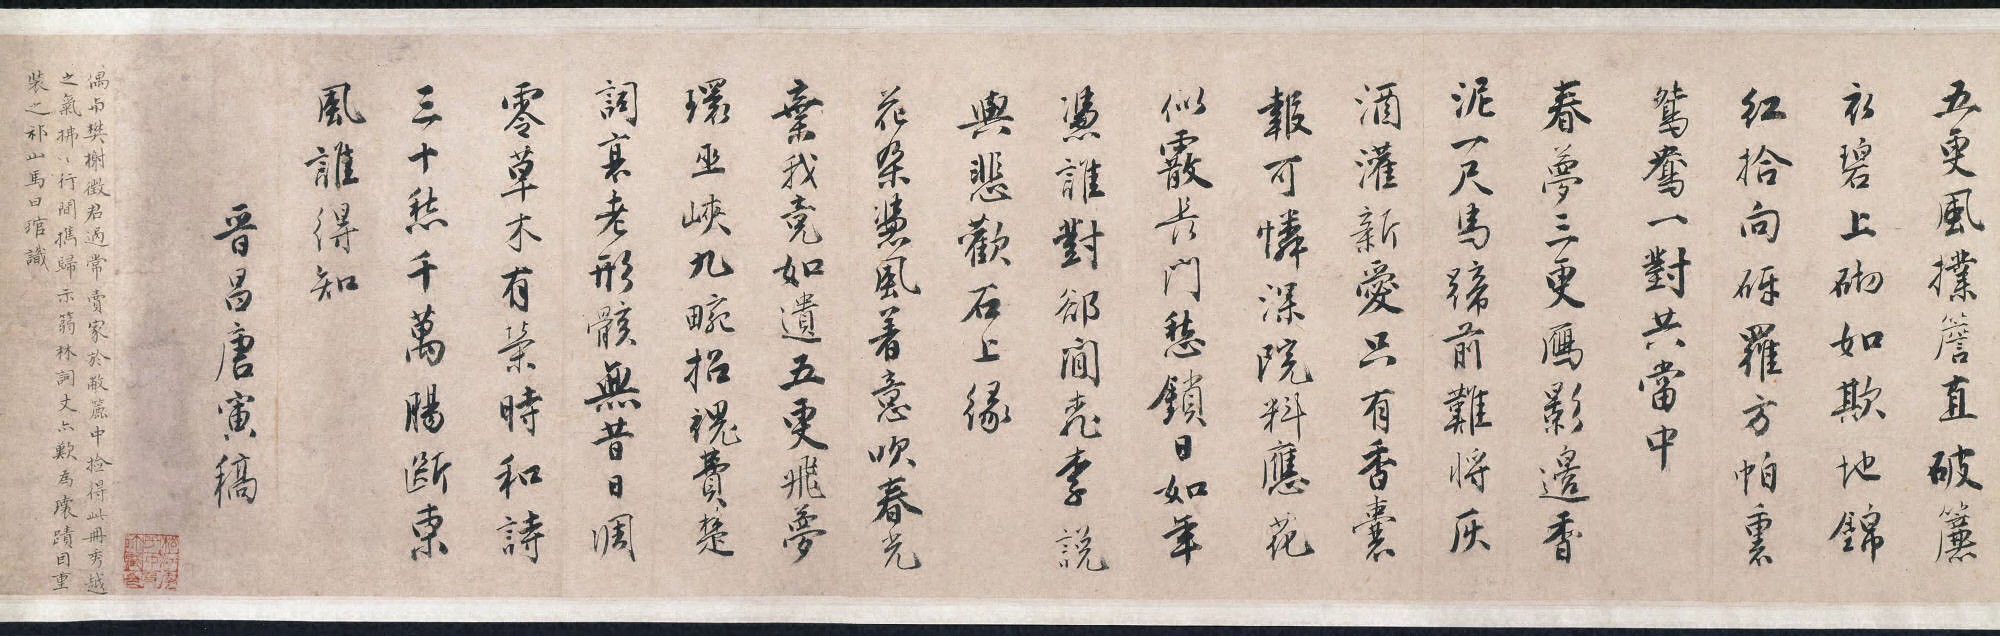 五更風撲簷直破簾
衫碧上砌如欺地錦
紅拾向砑羅方帕裹
鴛鴦一對共當中
春夢三更鴈影邊香
泥一尺馬蹄前難将灰
酒灌新愛只有香囊
報可憐深院料應花
似霰長門愁鎖日如年
憑誰對卻閒桃李說
與悲歡石上緣
花朵憑風着意吹春光
棄我竟如遺五更飛夢
環巫峽九畹招魂費楚
詞衰老形骸無昔日凋
零草木有榮時和詩
三十愁千萬腸斷東
風誰得知
晉昌唐寅稿
偶与樊榭徵君過常賣家於敝簏中撿得此冊秀越
之氣拂〻行間攜歸示篛林詞丈亦歎為瓌蹟因重
裝之祁山馬曰琯識